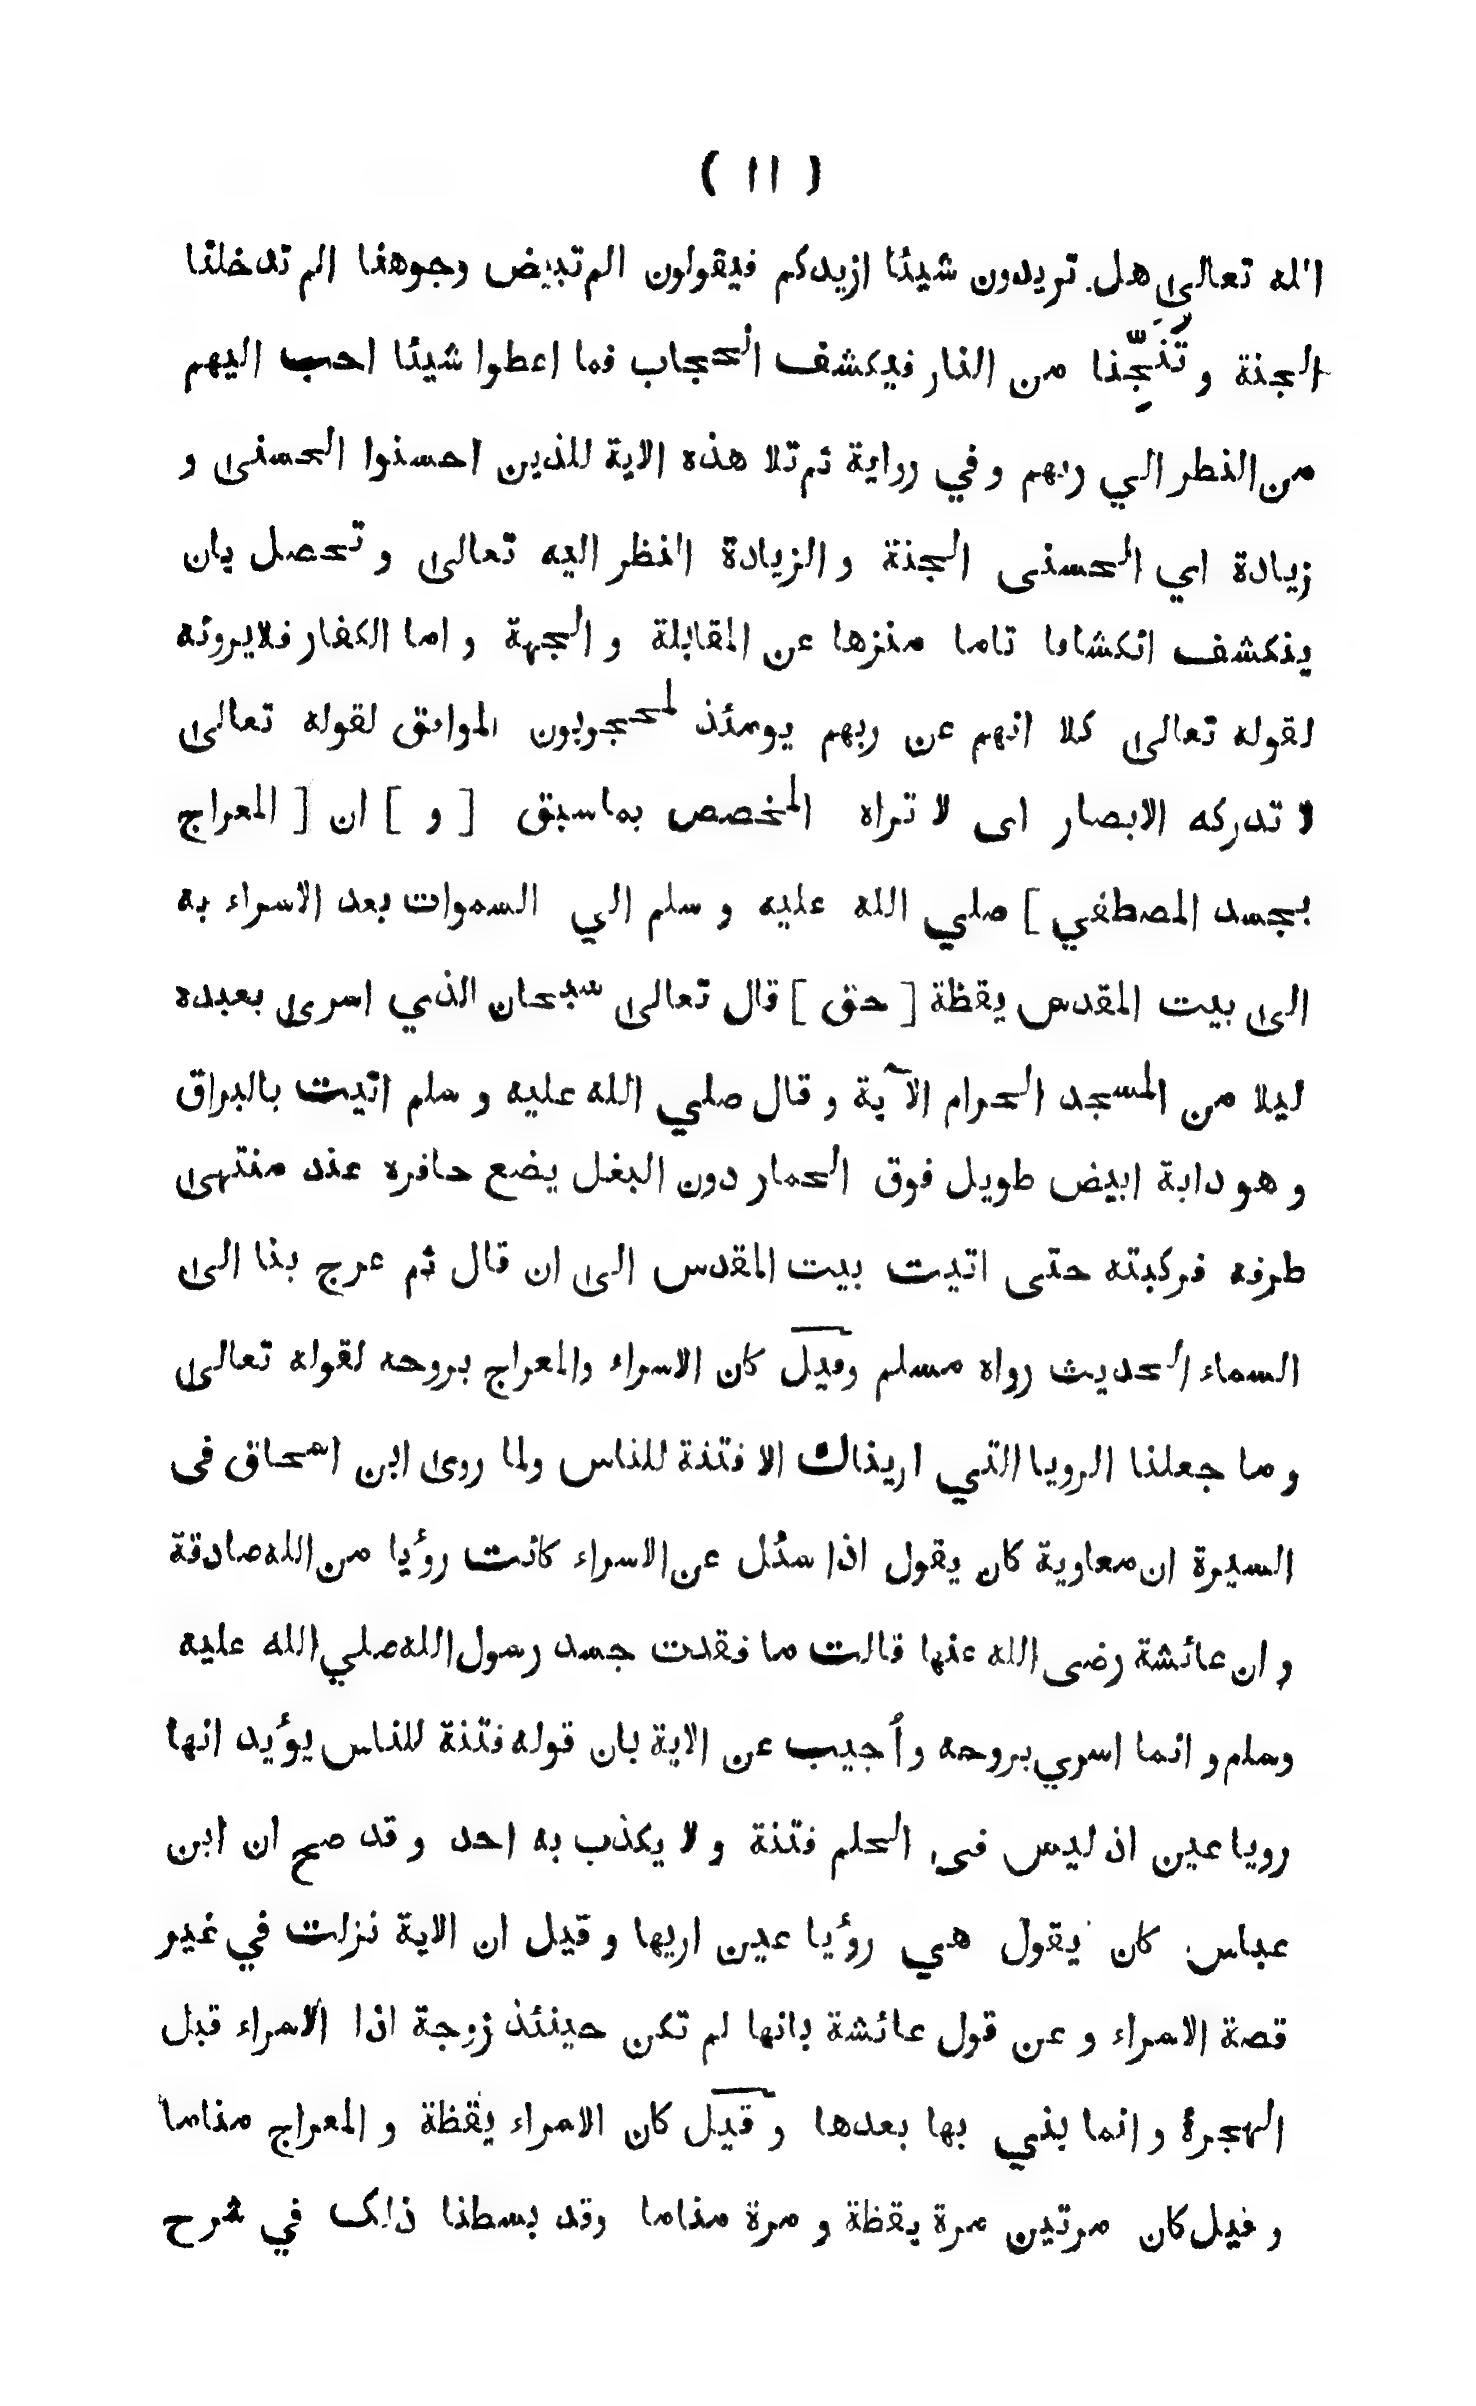 ( ١١ )
الله تعالى هل تريدون شيئا ازيدكم فيقولون الم تبيض وجوهنا الم تدخلنا
الجنة و تُنَجِّنا من النار فيكشف الحجاب فما اعطوا شيئا احب اليهم
من النطر الي ربهم و في رواية ثم تلا هذه الاية للذين احسنوا الحسنى و
زيادة اي الحسنى الجنة و الزيادة النظر اليه تعالى و تحصل بان
ينكشف انكشافا تاما منزها عن المقابلة و الجهة و اما الكفار فلايرونه
لقوله تعالى كلا انهم عن ربهم يومئذ لمحجوبون الموافق لقوله تعالى
لا تدركه الابصار اى لا تراه المخصص بما سبق [ و ] ان [ المعراج
بجسد المصطفي ] صلي الله عليه و سلم الي السموات بعد الاسراء به
الى بيت المقدس يقظة [ حق ] قال تعالى سبحان الذي اسرى بعبده
ليلا من المسجد الحرام الآية و قال صلي الله عليه و سلم اتيت بالبراق
و هو دابة ابيض طويل فوق الحمار دون البغل يضع حافره عند منتهى
طرفه فركبته حتى اتيت بيت المقدس الى ان قال ثم عرج بنا الى
السماء الحديث رواه مسلم وقيل كان الاسراء والمعراج بروحه لقوله تعالى
و ما جعلنا الرويا التي اريناك الا فتنة للناس ولما روى ابن اسحاق فى
السيرة ان معاوية كان يقول اذا سئل عن الاسراء كانت رؤيا من الله صادقة
و ان عائشة رضى الله عنها قالت ما فقدت جسد رسول الله صلي الله عليه
وسلم و انما اسري بروحه و أجيب عن الاية بان قوله فتنة للناس يؤيد انها
رويا عين اذ ليس فى الحلم فتنة و لا يكذب به احد و قد صح ان ابن
عباس كان يقول هي رؤيا عين اريها و قيل ان الاية نزلت في غير
قصة الاسراء و عن قول عائشة بانها لم تكن حينئذ زوجة اذا الاسراء قبل
الهجرة و انما بني بها بعدها و قيل كان الاسراء يقظة و المعراج مناما
و قيل كان مرتين مرة يقظة و مرة مناما وقد بسطنا ذلك في شرح